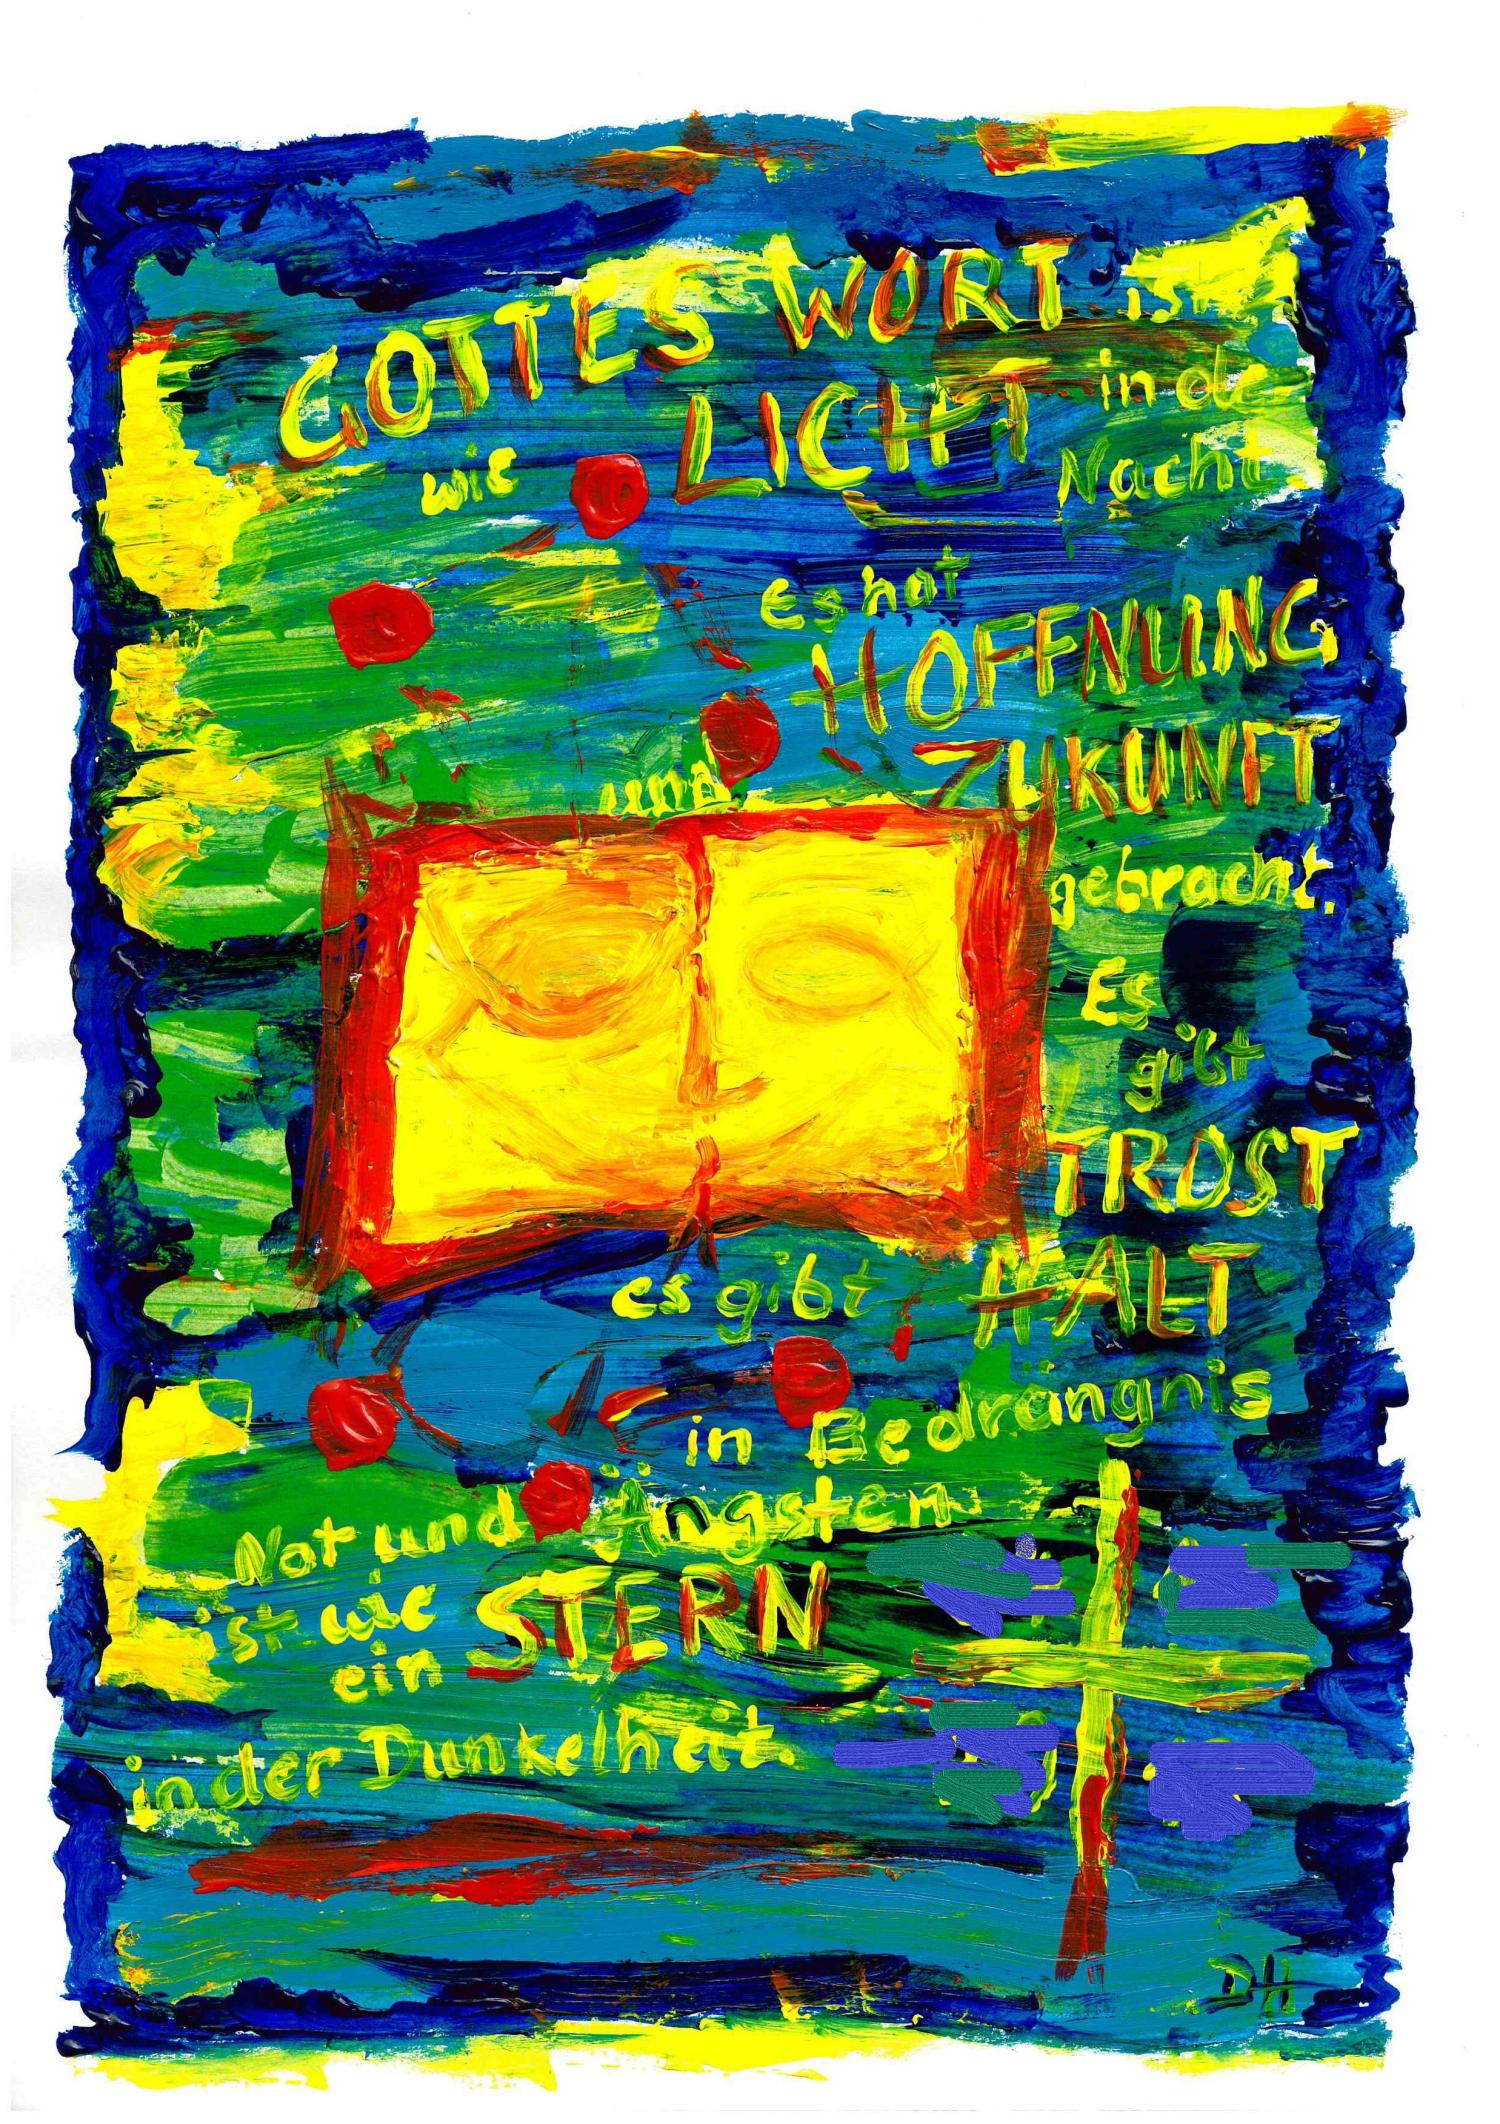 GOTTES WORT ist
wie LICHT in der
Nacht.
Es hat
HOFFNUNG
und ZUKUNFT
gebracht.
Es
gibt
TROST
es gibt HALT
in Bedrängnis
Not und Ängsten
ist wie
ein STERN
in der Dunkelheit.
DH